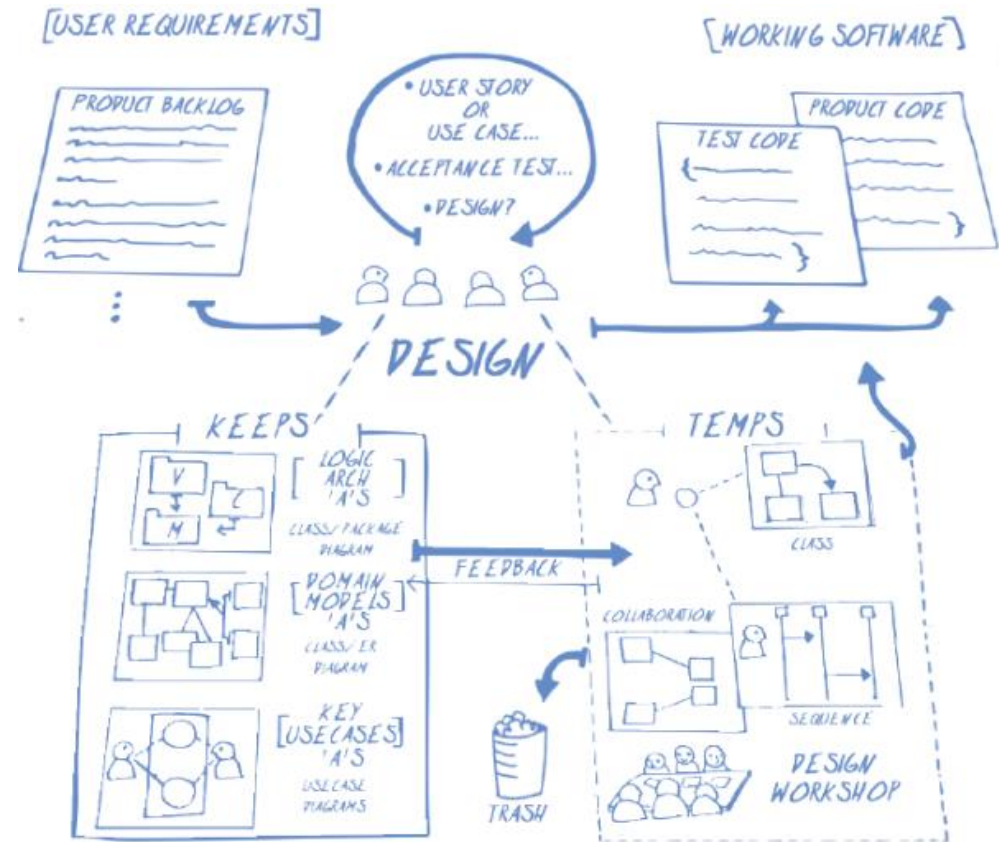 [USER REQUIREMENTS]
[WORKING SOFTWARE]
PRODUCT BACKLOG
• USER STORY
OR
USE CASE...
• ACCEPTANCE TEST...
• DESIGN?
PRODUCT CODE
TEST CODE
DESIGN
KEEPS
V
C
M
[LOGIC
ARCH
'A'S]
CLASS/PACKAGE
DIAGRAM
[DOMAIN
MODELS
'A'S]
CLASS/ER
DIAGRAM
[KEY
USECASES
'A'S]
USECASE
DIAGRAMS
FEEDBACK
TRASH
TEMPS
CLASS
COLLABORATION
SEQUENCE
DESIGN
WORKSHOP